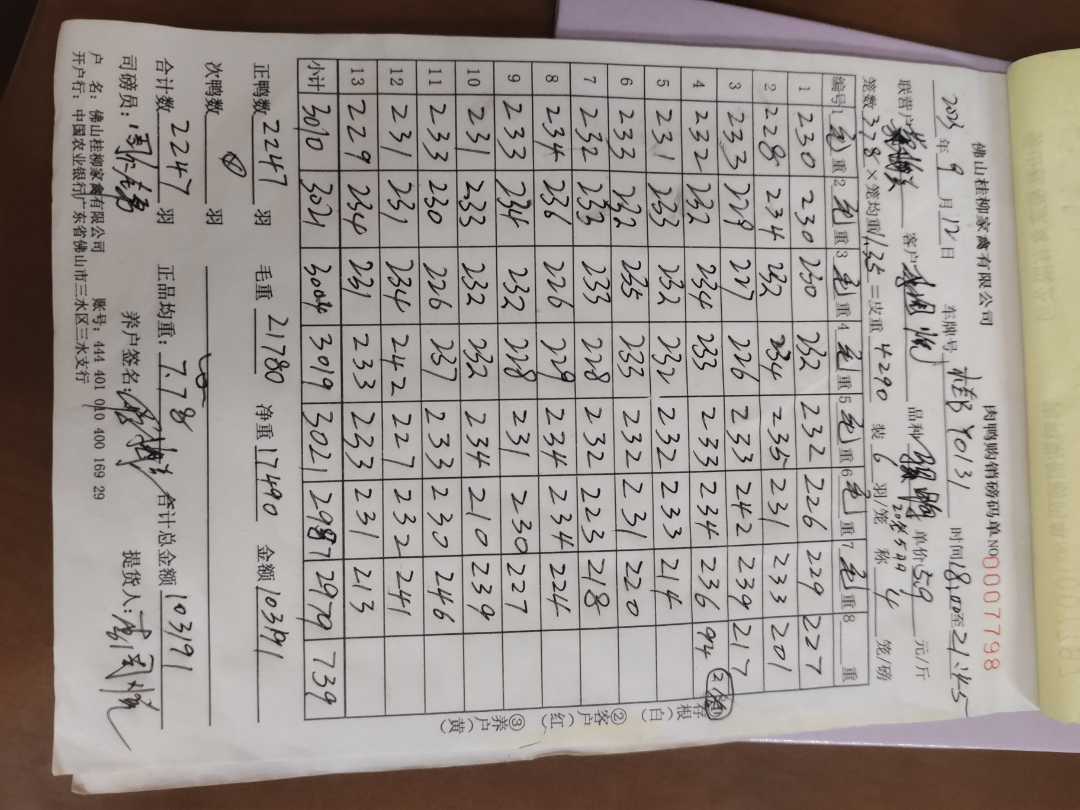 佛山桂柳家禽有限公司 肉鸭购销磅码单 NO 00007798
2023年9月12日 车牌号 桂 Y0131 时间18:00至21:45
联营户 客户 品种 单价5.9元/斤
笼数378×笼均重11.35=皮重4290 装6羽/笼 称4笼/磅
编号 1毛重 2毛重 3毛重 4毛重 5毛重 6毛重 7毛重 8 重
1 230 230 230 232 232 226 229 227
2 228 234 232 234 235 231 233 201
3 233 229 227 226 233 242 239 217
4 232 232 234 233 233 234 236 94
5 231 233 232 232 232 233 214
6 233 232 235 233 232 231 220
7 232 233 233 228 232 223 218
8 234 236 226 229 234 234 224
9 233 234 232 228 231 230 227
10 231 233 232 232 234 210 239
11 233 230 226 237 233 230 246
12 231 231 234 242 227 232 241
13 229 234 231 233 233 231 213
小计 3010 3021 3004 3019 3021 2987 2979 739
存根（白） ②客户（红） ③养户（黄）
正鸭数2247羽 毛重21780 净重17490 金额103191
次鸭数 羽
合计数2247羽 正品均重：7.78 合计总金额103191
司磅员： 养户签名： 提货人：
户 名：佛山桂柳家禽有限公司 账号：444 401 010 400 169 29
开户行：中国农业银行广东省佛山市三水区三水支行